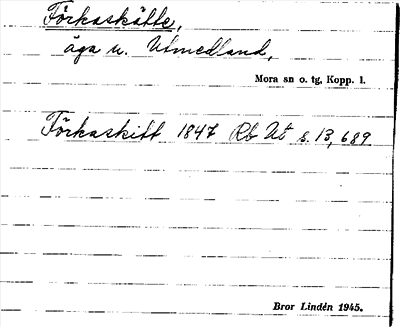 Förkaskätte,
äga u. Utmedland,
Mora sn o. tg, Kopp. l.
Förkaskitt 1847 Rb Ut s. 13, 689
Bror Lindén 1945.